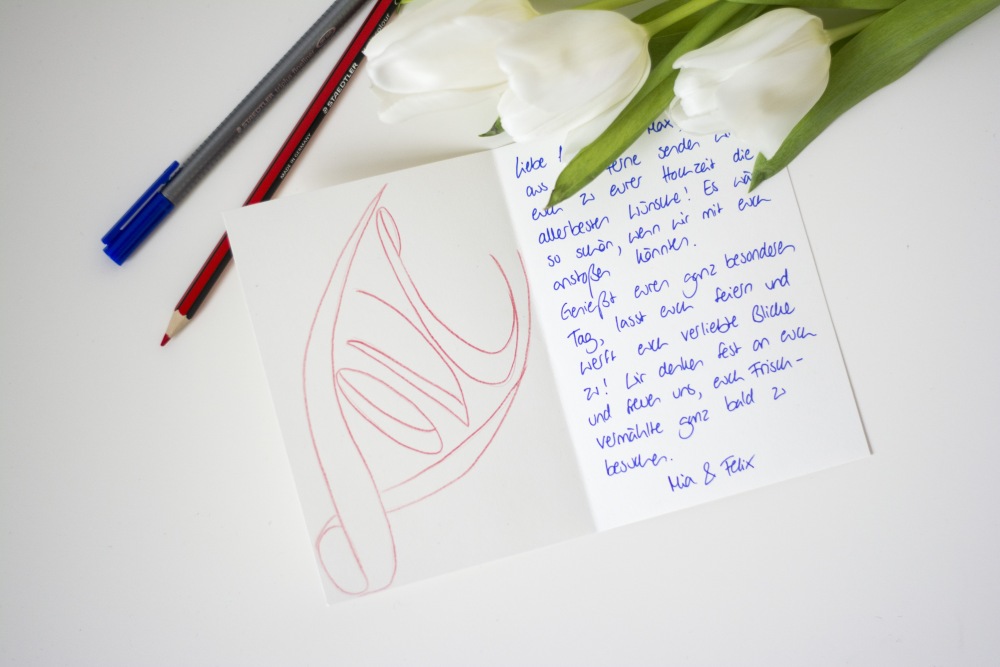 STAEDTLER
STAEDTLER
MADE IN GERMANY
Liebe Max
aus ferne senden
euch zu eurer Hochzeit die
allerbesten Wünsche! Es
so schön, wenn wir mit euch
anstoßen könnten.
Genießt euren ganz besonderen
Tag, lasst euch feiern und
werft euch verliebte Blicke
zu! Wir denken fest an euch
und freuen uns, euch Frisch-
vermählte ganz bald zu
besuchen.
Mia & Felix